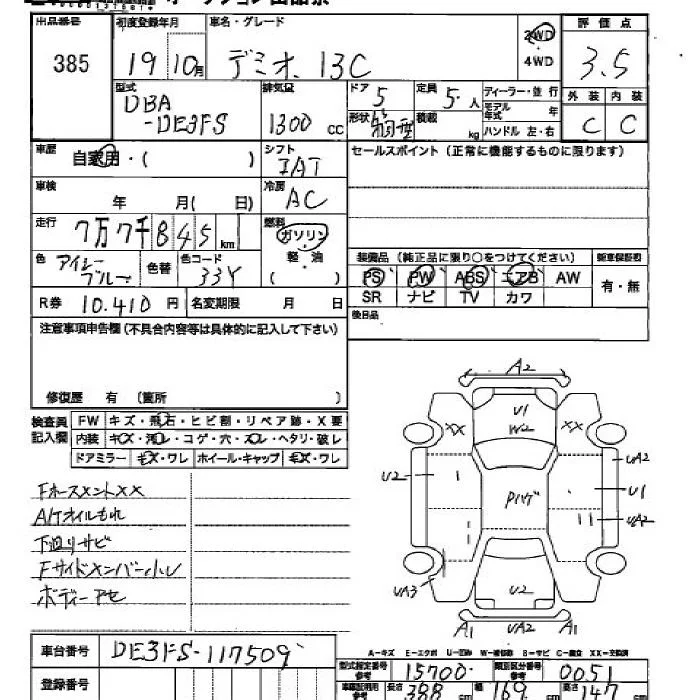 オークション出品票
出品番号 初度登録年月 車名・グレード 評価点
385 19 10月 デミオ 13C 2WD 4WD 3.5
型式 排気量 ドア 定員 ディーラー・並行 外装 内装
DBA
-DE3FS 1300 cc 5 5 人 モデル年式 年 C C
形状 積載 kg ハンドル 左・右
車歴 自家用・( ) シフト IAT セールスポイント(正常に機能するものに限ります)
車検 年 月( 日) 冷房 AC
走行 7万7千845km 燃料 ガソリン
軽・油
色 アイシーブルー 色替 色コード 33Y 装備品(純正品に限り○をつけてください) 新車保証書
PS PW ABS エアB AW 有・無
R券 10.410円 名変期限 月 日 SR ナビ TV カワ
注意事項申告欄(不具合内容等は具体的に記入して下さい) 後日品
修復歴 有 (箇所 )
検査員記入欄 FW キズ・飛石・ヒビ割・リペア跡・X要
内装 キズ・汚れ・コゲ・穴・スレ・ヘタリ・破レ
ドアミラー キズ・ワレ ホイール・キャップ キズ・ワレ
A2
U1
W2
XX XX
U2 1 Pハゲ UA2
U1
UA2
UA3 U2
A1 UA2 A1
FホースメントXX
A/Tオイルもれ
下廻りサビ
Fサイドメンバー小レ
ボディーアセ
A-キズ E-エクボ U-凹み W-補修跡 B-サビ C-腐食 XX-交換済
車台番号 DE3FS-117509
型式指定番号参考 15700 類別区分番号参考 0051
登録番号 長さ 388 cm 幅 169 cm 高さ 147 cm